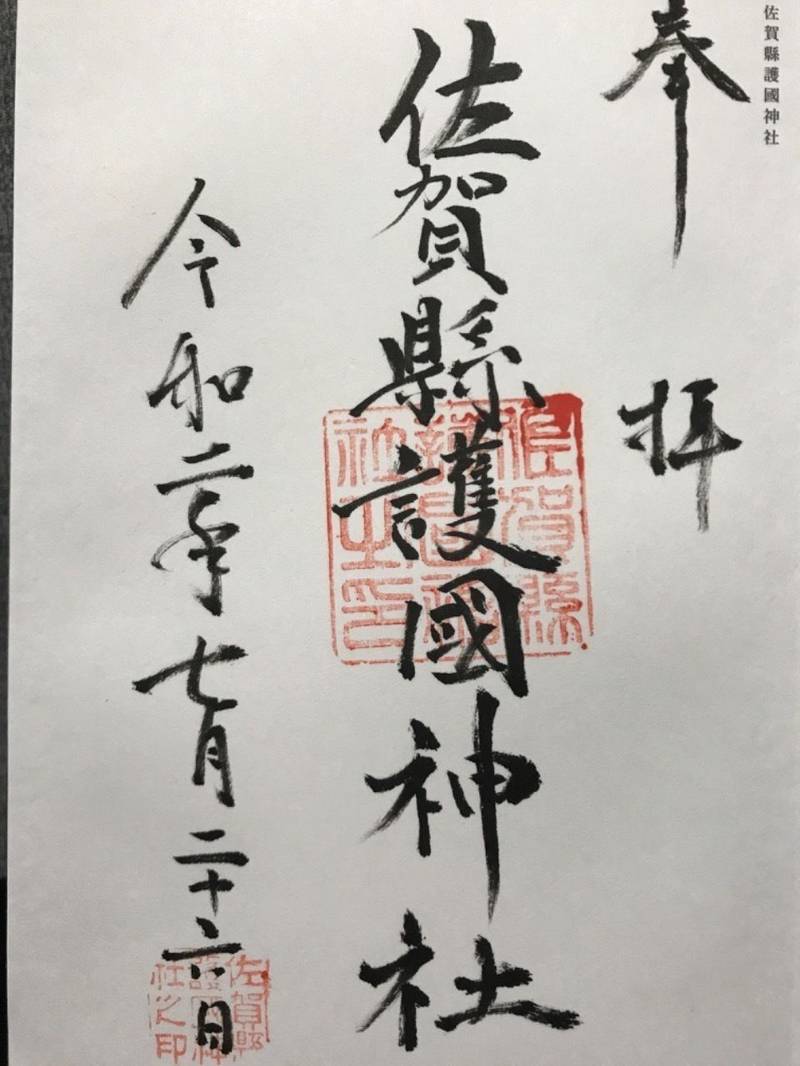 佐賀縣護國神社
奉拝
佐賀縣護國神社
佐賀縣護國神社之印
令和二年七月二十六日
佐賀縣護國神社之印